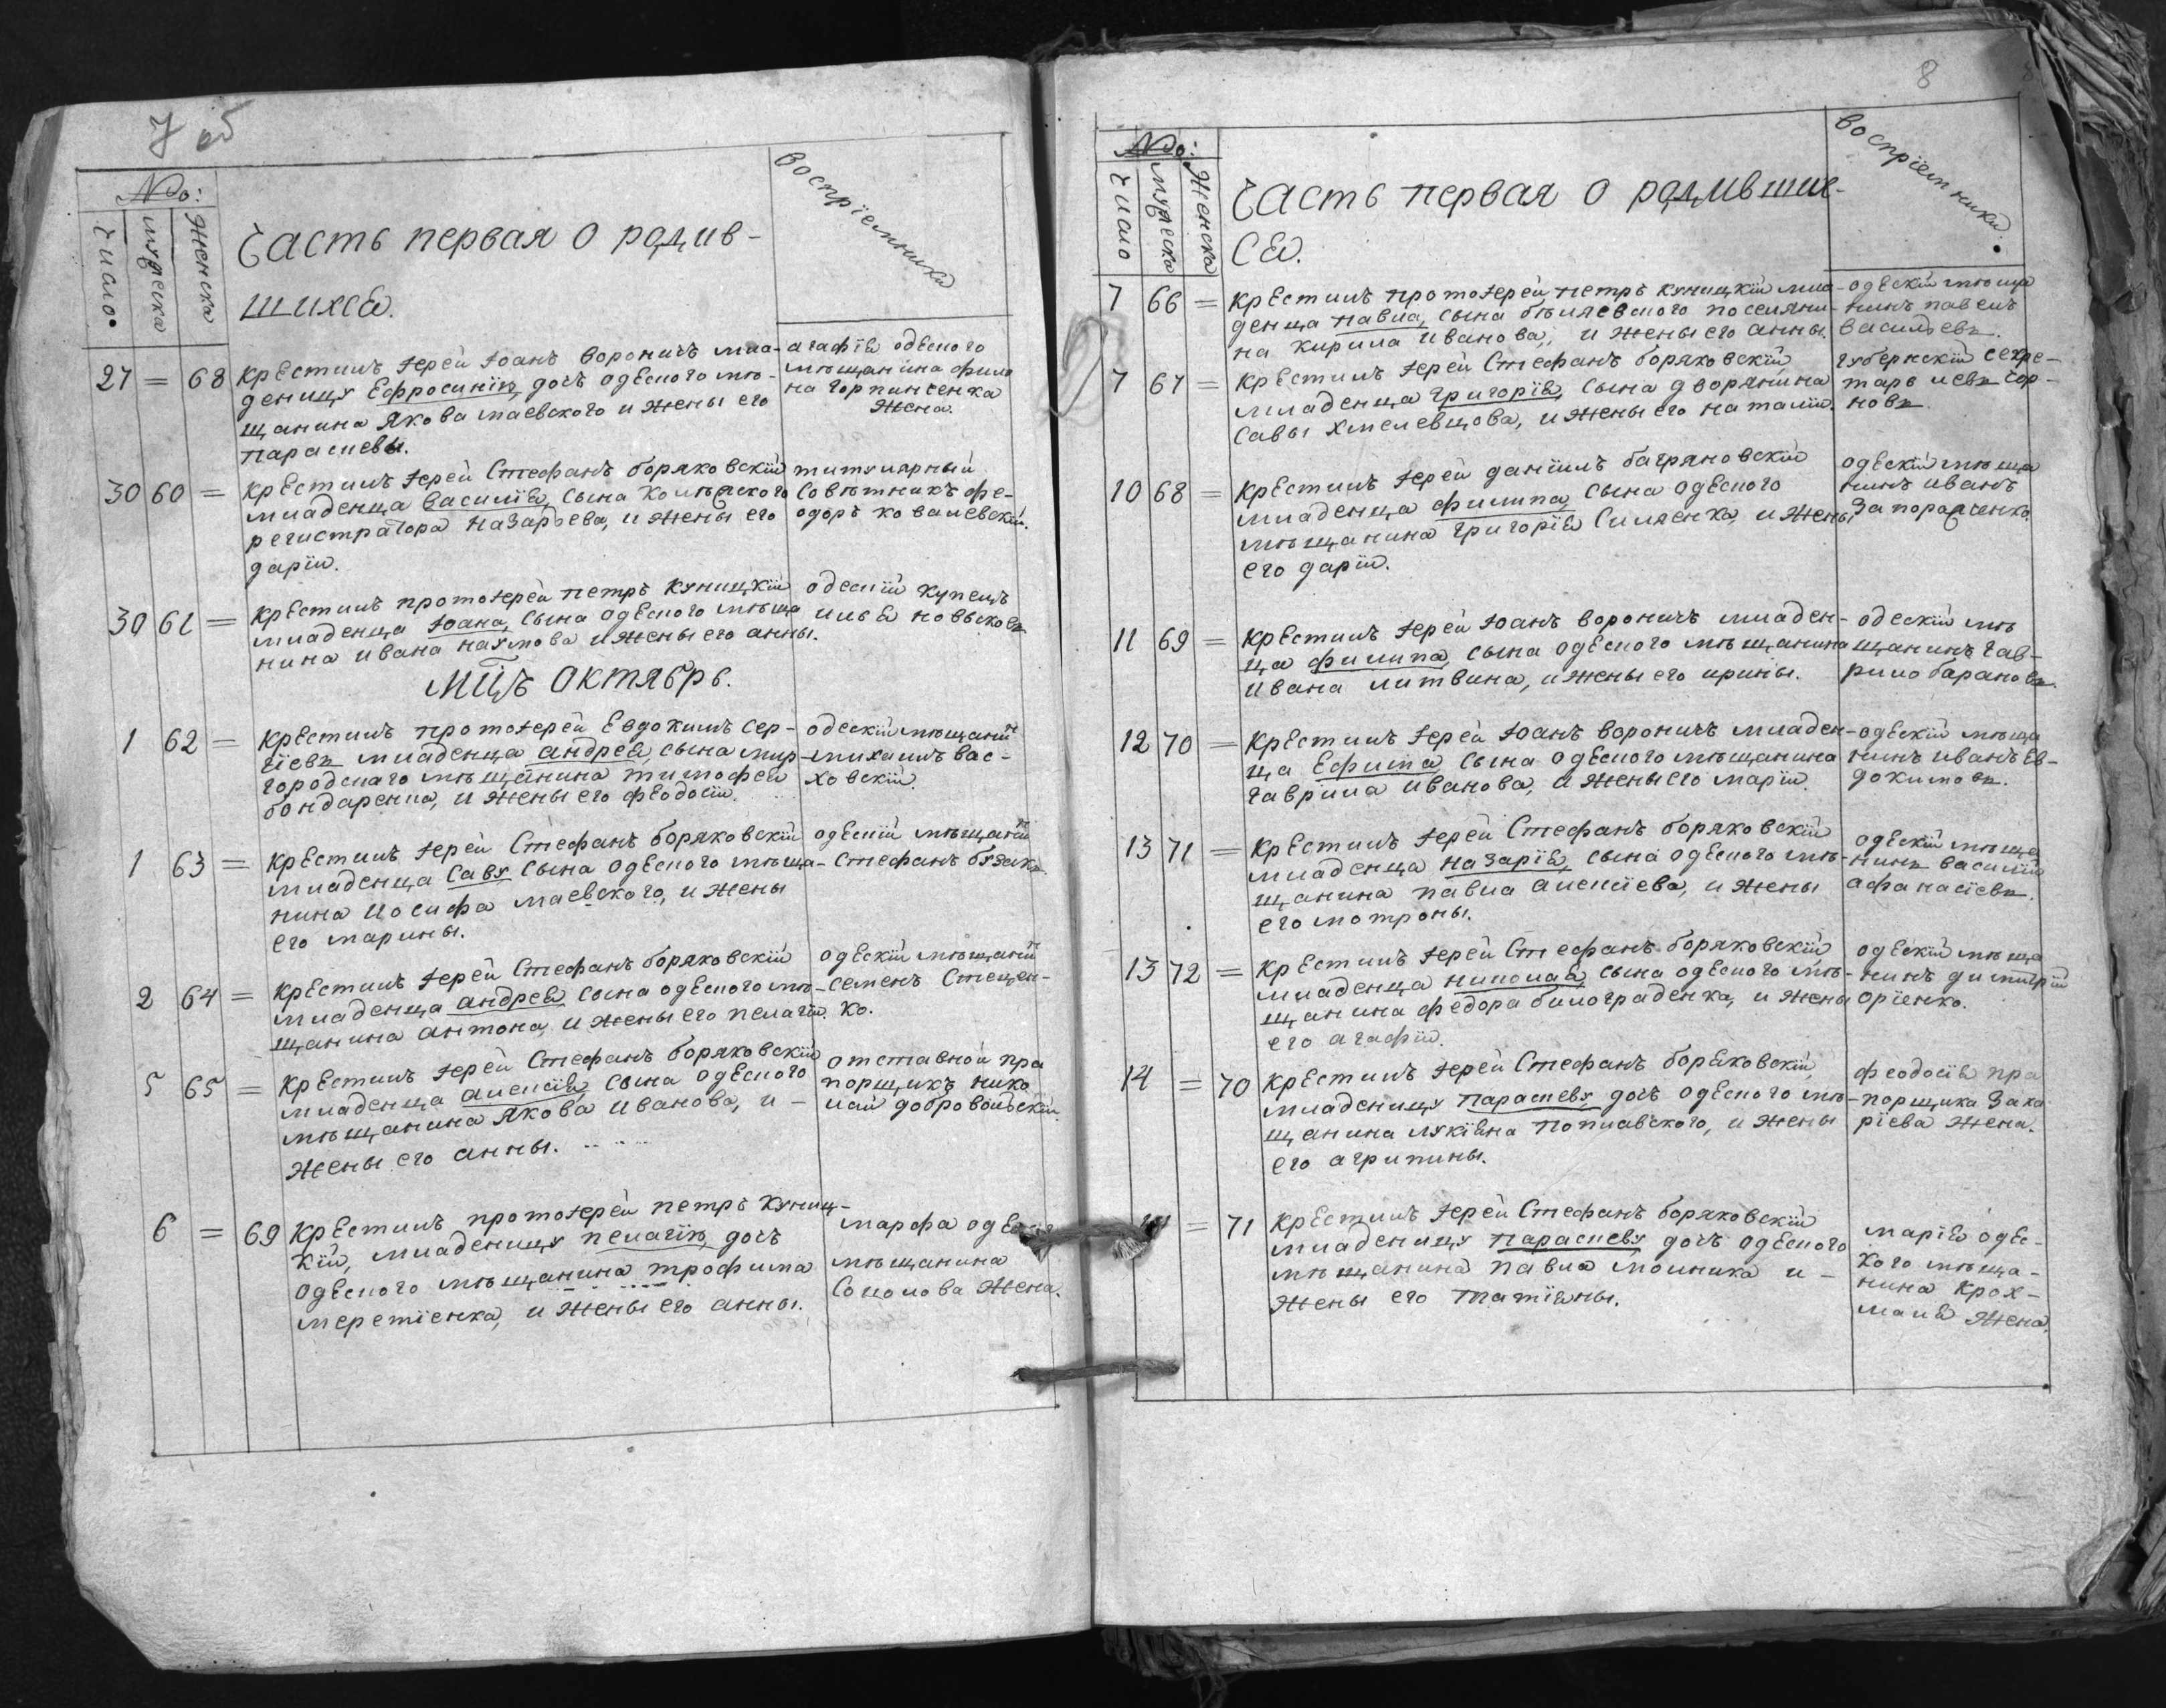 7 об
№:
Число.
мужеска
Женска
Часть первая о родив-
шихся.
воспріемники
27 = 68 крестилъ іерей іоанъ вороничъ мла-
деницу Ефросинію, дочь одеского мѣ-
щанина якова маевского и жены его
параскевы.
агафія одеского
мѣщанина фили
на горпинченка
жена.
30 60 = крестилъ іерей Стефанъ боряковскій
младенца василія, сына колѣжского
регистратора назарьева, и жены его
даріи.
титулярный
совѣтникъ фе-
одоръ ковалевскій.
30 61 = крестилъ протоіерей петръ куницкій
младенца іоана, сына одеского мѣща
нина ивана наумова и жены его анны.
одескій купецъ
илья новиковъ
мцъ октябрь.
1 62 = крестилъ протоіерей Евдокимъ сер-
гіевъ младенца андрея, сына мир-
городскаго мѣщанина тимофея
бондаренка, и жены его феодосіи.
одескій мѣщанин
михаилъ вас-
ховскій.
1 63 = крестилъ іерей Стефанъ боряковскій
младенца саву, сына одеского мѣща-
нина иосифа маевского, и жены
его марины.
одескій мѣщанин
Стефанъ
2 64 = крестилъ іерей Стефанъ боряковскій
младенца андрея, сына одеского мѣ-
щанина антона, и жены его пелагіи.
одескій мѣщанин
семенъ Стецен-
ко.
5 65 = крестилъ іерей Стефанъ боряковскій
младенца алексія, сына одеского
мѣщанина якова иванова, и -
жены его анны.
отставной пра
порщикъ нико
лай добровольскій
6 = 69 крестилъ протоіерей петръ куниц-
кій, младеницу пелагію, дочь
одеского мѣщанина трофима
меретіенка, и жены его анны.
марфа одеского
мѣщанина
Соколова жена.
8
№:
Число
мужеска
Женска
Часть первая о родившие-
ся.
воспріемники.
7 66 = крестилъ протоіерей петръ куницкій мла-
денца павла, сына бѣляевского поселяни-
на кирила иванова, и жены его анны.
одескій мѣща
нинъ павелъ
васильевъ.
7 67 = крестилъ іерей Стефанъ боряковскій,
младенца григорія, сына дворянина
савы хмелевцова, и жены его наталіи.
губернскій секре-
тарь левъ чор-
новъ.
10 68 = крестилъ іерей даніилъ багряновскій
младенца филипа, сына одеского
мѣщанина григорія Силяенка, и жены
его даріи.
одескій мѣща
нинъ иванъ
Запорожченко.
11 69 = крестилъ іерей іоанъ вороничъ младен-
ца филипа, сына одеского мѣщанина
ивана литвина, и жены его ирины.
одескій мѣ
щанинъ гав-
рило барановъ.
12 70 = крестилъ іерей іоанъ вороничъ младен-
ца Ефима, сына одеского мѣщанина
гаврила иванова, и жены его маріи.
одескій мѣща
нинъ иванъ ев-
докимовъ.
13 71 = крестилъ іерей Стефанъ боряковскій
младенца назарія, сына одеского мѣ-
щанина павла алексіева, и жены
его мотроны.
одескій мѣща
нинъ василій
афанасіевъ.
13 72 = крестилъ іерей Стефанъ боряковскій
младенца николая, сына одеского мѣ-
щанина федора билограденка, и жены
его агафіи.
одескій мѣща
нинъ димитрій
оріенко.
14 = 70 крестилъ іерей Стефанъ боряковскій,
младеницу параскеву, дочь одеского мѣ-
щанина лукіяна поплавского, и жены
его агрипины.
феодосія пра
порщика Заха
ріева жена.
14 = 71 крестилъ іерей Стефанъ боряковскій
младеницу параскеву, дочь одеского
мѣщанина павла молника и -
жены его татіяны.
марія одес-
кого мѣща-
нина крох-
маля жена.